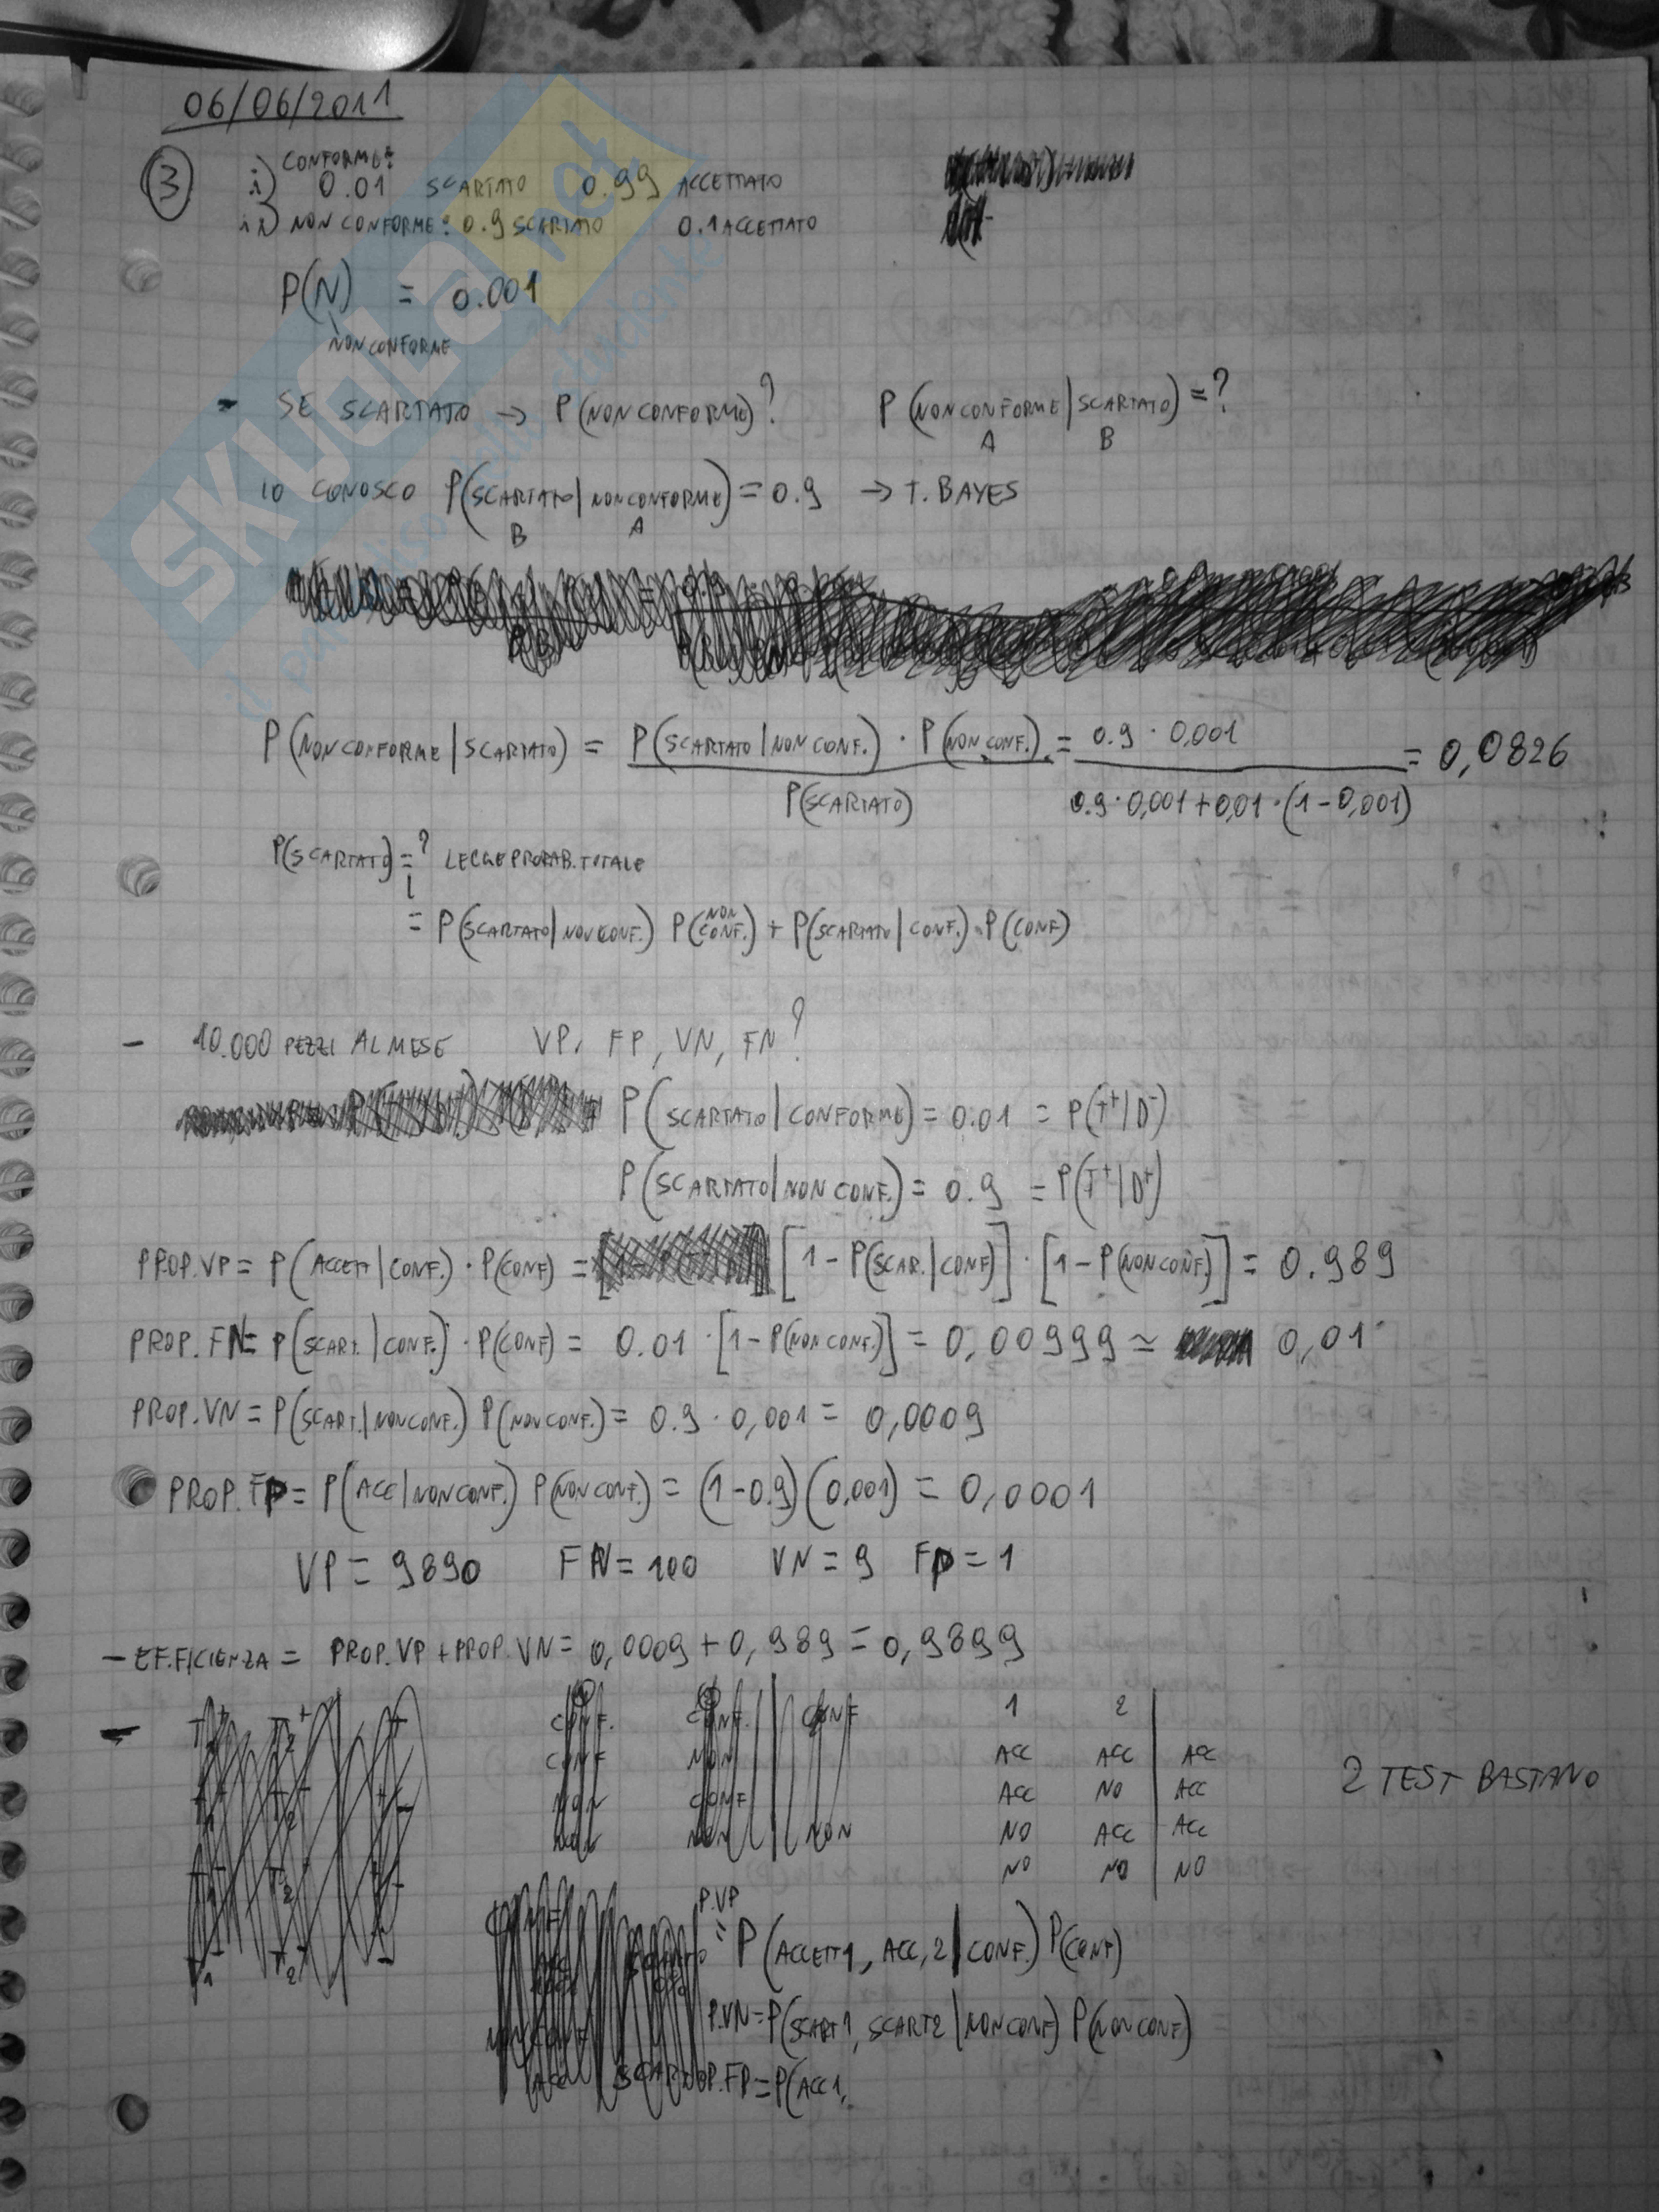 06/06/2011
③ i) CONFORME: 0.01 SCARTATO 0.99 ACCETTATO
ii) NON CONFORME: 0.9 SCARTATO 0.1 ACCETTATO
P(N) = 0.001
NON CONFORME
- SE SCARTATO → P(NON CONFORME)? P(NON CONFORME | SCARTATO) = ?
A B
IO CONOSCO P(SCARTATO | NON CONFORME) = 0.9 → T. BAYES
B A
P(NON CONFORME | SCARTATO) = P(SCARTATO | NON CONF.) · P(NON CONF.) / P(SCARTATO) = 0.9 · 0,001 / 0.9 · 0,001 + 0,01 · (1 - 0,001) = 0,0826
P(SCARTATO) = ? LEGGE PROBAB. TOTALE
= P(SCARTATO | NON CONF.) P(NON CONF.) + P(SCARTATO | CONF.) · P(CONF)
- 10.000 PEZZI AL MESE VP, FP, VN, FN?
P(SCARTATO | CONFORME) = 0.01 = P(T⁺|D⁻)
P(SCARTATO | NON CONF.) = 0.9 = P(T⁺|D⁺)
PROP. VP = P(ACCETT | CONF.) · P(CONF) = [1 - P(SCAR. | CONF)] · [1 - P(NON CONF.)] = 0.989
PROP. FN = P(SCART. | CONF.) · P(CONF) = 0.01 · [1 - P(NON CONF.)] = 0,00999 ≃ 0,01
PROP. VN = P(SCART. | NON CONF.) P(NON CONF.) = 0.9 · 0,001 = 0,0009
PROP. FP = P(ACC | NON CONF.) P(NON CONF.) = (1 - 0.9) (0,001) = 0,0001
VP = 9890 FN = 100 VN = 9 FP = 1
- EFFICIENZA = PROP. VP + PROP. VN = 0,0009 + 0,989 = 0,9899
1 2
ACC ACC ACC
ACC NO ACC
NO ACC ACC
NO NO NO
2 TEST BASTANO
P.VP = P(ACCETT1, ACC,2 | CONF.) P(CONF)
P.VN = P(SCART1, SCART2 | NON CONF) P(NON CONF)
PROP. FP = P(ACC1,
SKUOLA.net
il paradiso dello studente